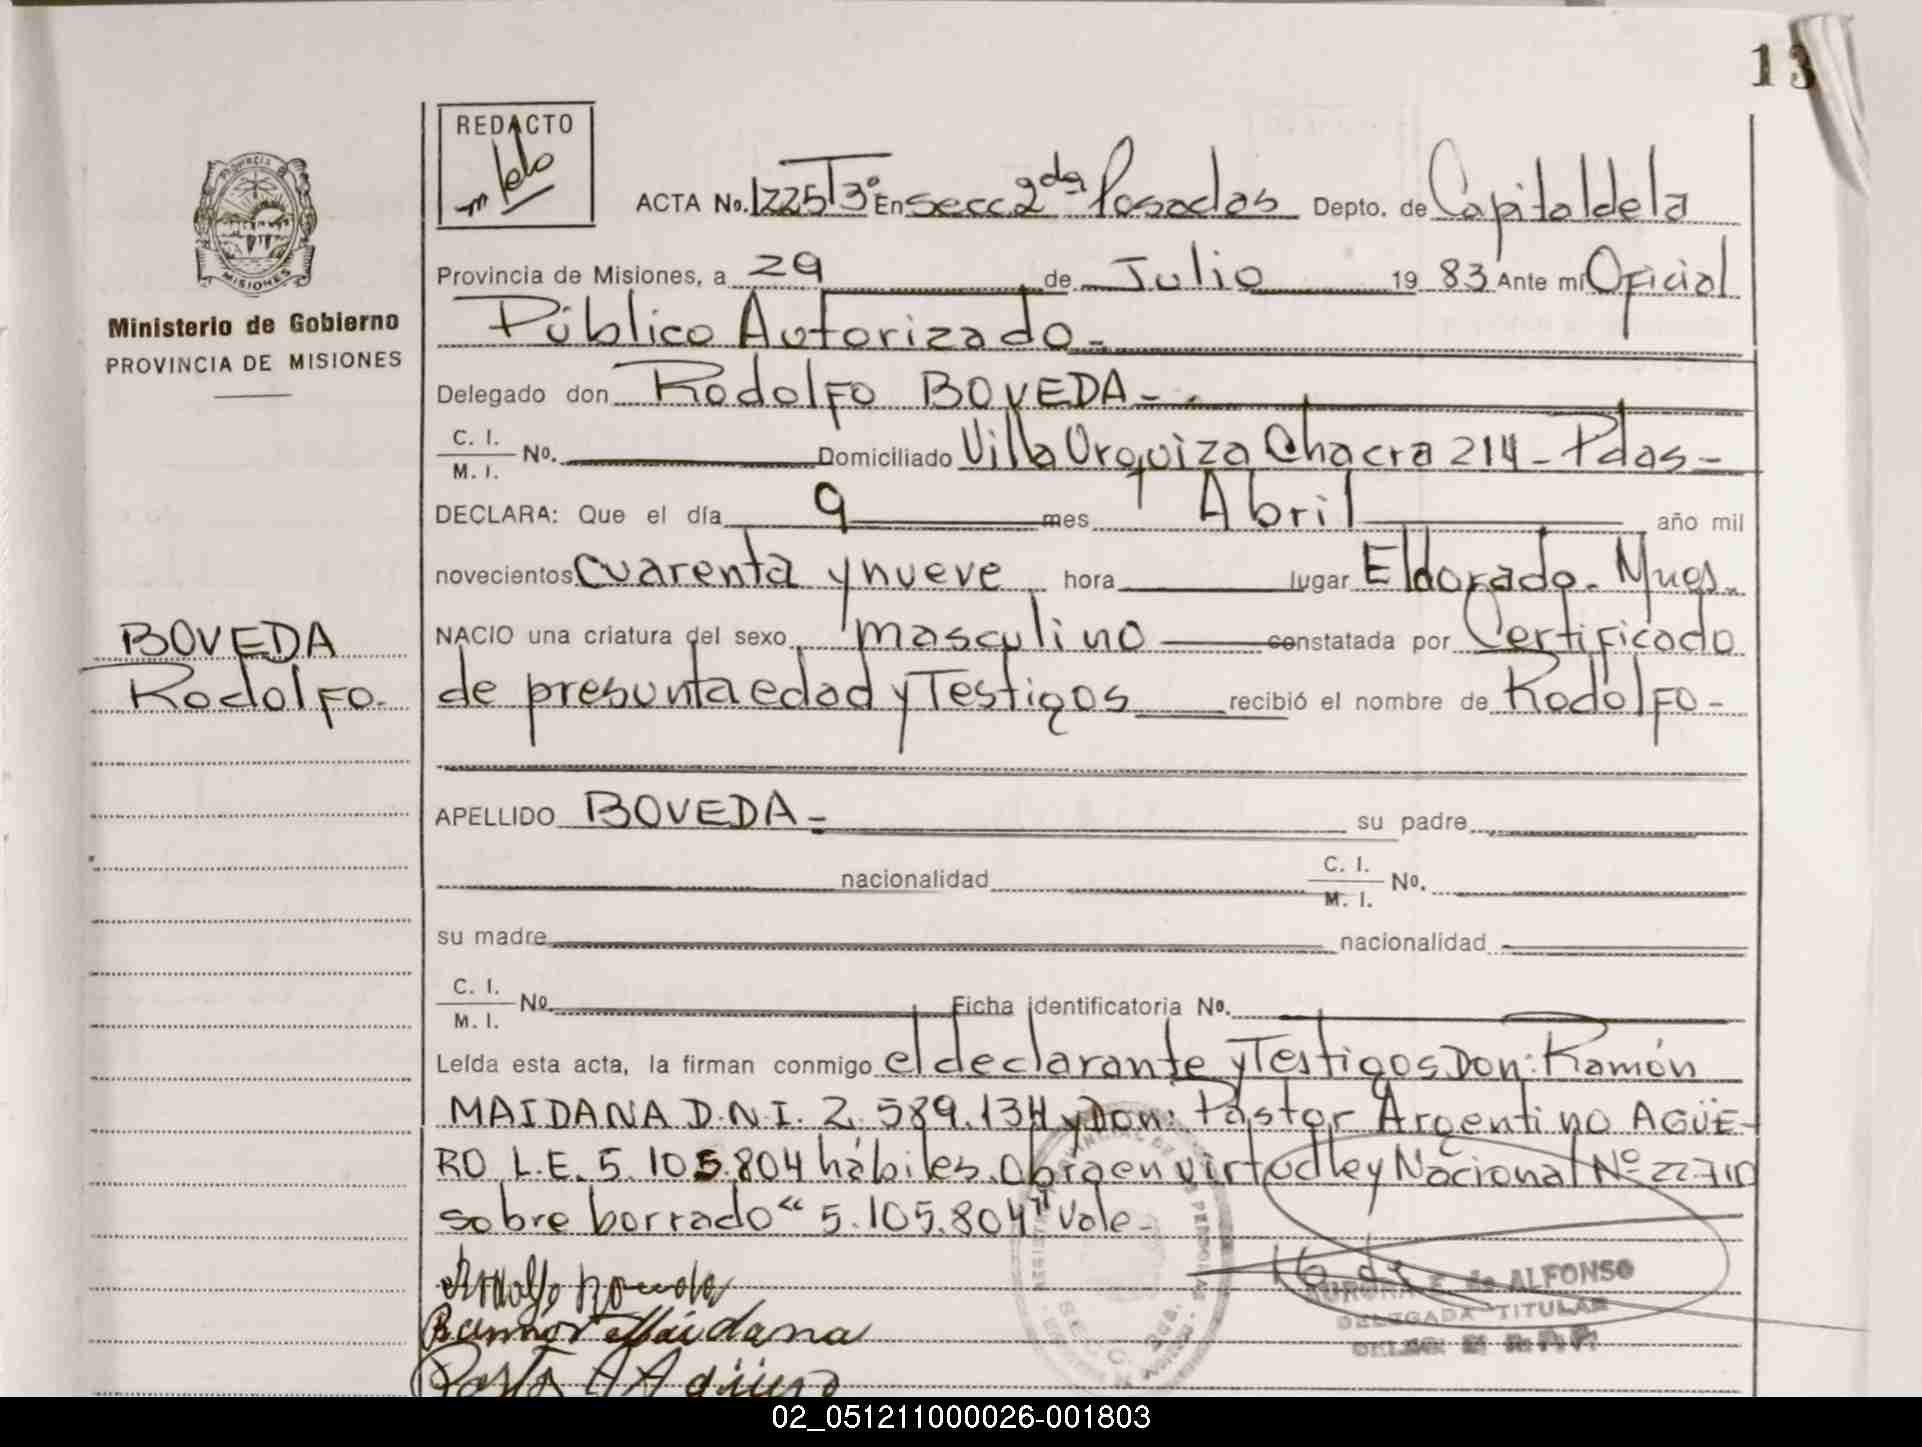 13
REDACTO
ACTA No. 1225 T3º En Secc 2da Posadas Depto. de Capital de la
Provincia de Misiones, a 29 de Julio 1983 Ante mí Oficial
Público Autorizado -
Ministerio de Gobierno
PROVINCIA DE MISIONES
Delegado don Rodolfo BOVEDA -
C. I.
M. I. No. Domiciliado Villa Urquiza Chacra 214 - Pdas -
DECLARA: Que el día 9 mes Abril año mil
novecientos cuarenta y nueve hora lugar Eldorado - Mnes.
NACIO una criatura del sexo masculino constatada por Certificado
de presunta edad y Testigos recibió el nombre de Rodolfo -
BOVEDA
Rodolfo.
APELLIDO BOVEDA - su padre
nacionalidad C. I.
M. I. No.
su madre nacionalidad
C. I.
M. I. No. Ficha identificatoria No.
Leída esta acta, la firman conmigo el declarante y Testigos Don: Ramón
MAIDANA D.N.I. 2.589.134 y Don: Pastor Argentino AGÜE-
RO L.E. 5.105.804 hábiles. Obra en virtud ley Nacional Nº 22.710
sobre borrado "5.105.804" Vale -
Ramón Maidana
de ALFONSO
DELEGADA TITULAR
02_051211000026-001803